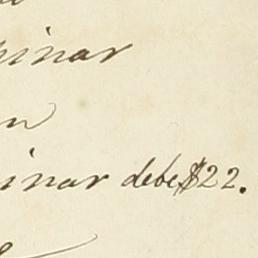 inar
n
inar debe $22.